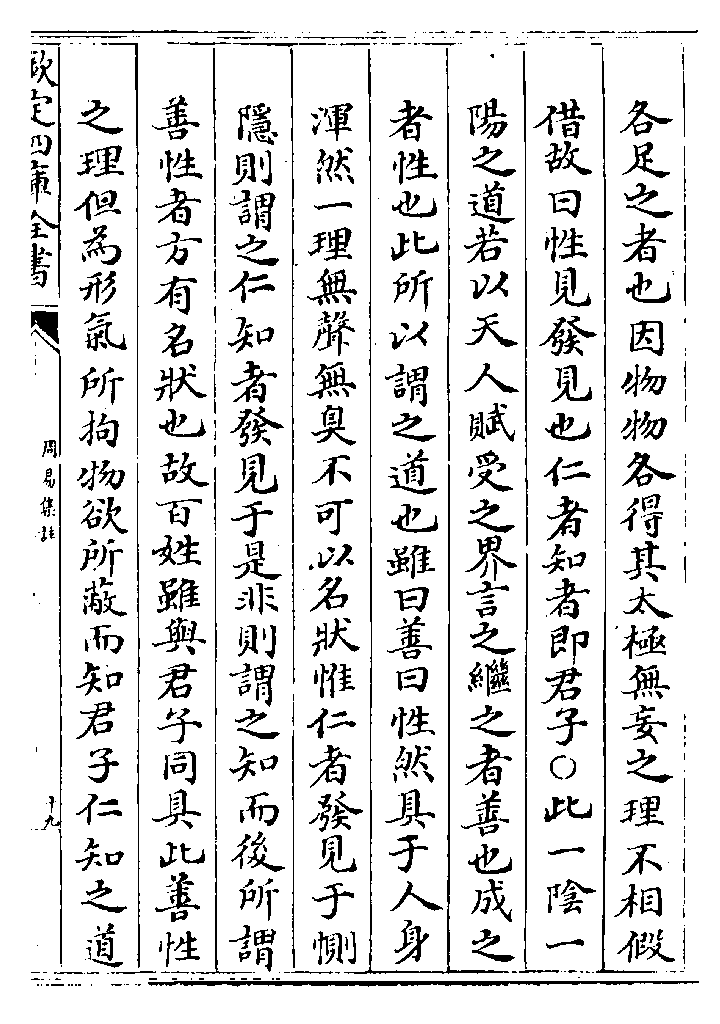 各足之者也因物物各得其太極無妄之理不相假
借故曰性見發見也仁者知者即君子○此一陰一
陽之道若以天人賦受之界言之繼之者善也成之
者性也此所以謂之道也雖曰善曰性然具于人身
渾然一理無聲無臭不可以名狀惟仁者發見于惻
隱則謂之仁知者發見于是非則謂之知而後所謂
善性者方有名狀也故百姓雖與君子同具此善性
之理但為形氣所拘物欲所蔽而知君子仁知之道
欽定四庫全書
周易集註
十九